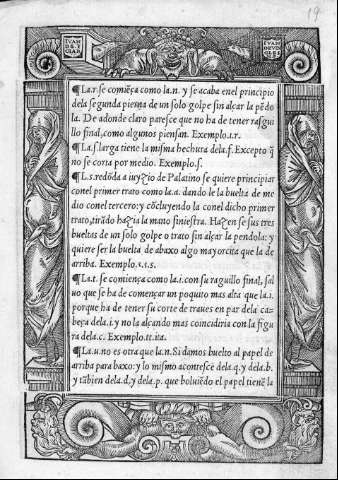 19
IVAN DE YCIAR
IVAN DE VIN GLES
¶ La.r. se comiẽça como la.n. y se acaba enel principio
dela segunda pierna de un solo golpe sin alçar la pẽdo
la. De adonde claro paresce que no ha de tener rasgui
llo final, como algunos piensan. Exemplo.ı.r.
¶ La.ſ larga tiene la misma hechura dela.f. Excepto q̃
no se corta por medio. Exemplo.ſ.
¶ L.s.redõda a iuyzio de Palatino se quiere principiar
conel primer trato como la.a. dando le la buelta de me
dio conel tercero; y cõcluyendo la conel dicho primer
trato, tirãdo hazia la mano siniestra. Hazen se sus tres
bueltas de un solo golpe o trato sin alçar la pendola: y
quiere ser la buelta de abaxo algo mayorcita que la de
arriba. Exemplo.s.s.
¶ La.t. se comiença como la.i. con su rasguillo final, sal
uo que se ha de començar un poquito mas alta que la.ı.
porque ha de tener su corte de traues en par dela ca-
beça dela.i. y no la alçando mas coincidiria con la figu
ra dela.c. Exemplo.ıt.ıta.
¶ La.u. no es otra que la.n. Si damos buelto al papel de
arriba para baxo: y lo mismo acontesce dela.q. y dela.b.
y tãbien dela.d. y dela.p. que boluiẽdo el papel tienẽ la